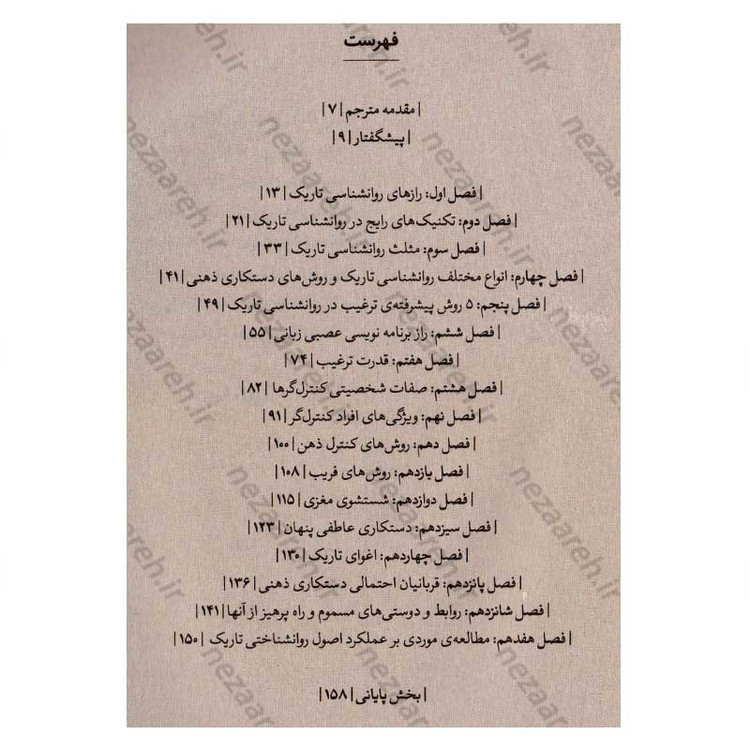 فهرست
| مقدمه مترجم | ۷ |
| پیشگفتار | ۹ |
| فصل اول: رازهای روانشناسی تاریک | ۱۳ |
| فصل دوم: تکنیک‌های رایج در روانشناسی تاریک | ۲۱ |
| فصل سوم: مثلث روانشناسی تاریک | ۳۳ |
| فصل چهارم: انواع مختلف روانشناسی تاریک و روش‌های دستکاری ذهنی | ۴۱ |
| فصل پنجم: ۵ روش پیشرفته‌ی ترغیب در روانشناسی تاریک | ۴۹ |
| فصل ششم: راز برنامه نویسی عصبی زبانی | ۵۵ |
| فصل هفتم: قدرت ترغیب | ۷۴ |
| فصل هشتم: صفات شخصیتی کنترل‌گرها | ۸۲ |
| فصل نهم: ویژگی‌های افراد کنترل‌گر | ۹۱ |
| فصل دهم: روش‌های کنترل ذهن | ۱۰۰ |
| فصل یازدهم: روش‌های فریب | ۱۰۸ |
| فصل دوازدهم: شستشوی مغزی | ۱۱۵ |
| فصل سیزدهم: دستکاری عاطفی پنهان | ۱۲۳ |
| فصل چهاردهم: اغوای تاریک | ۱۳۰ |
| فصل پانزدهم: قربانیان احتمالی دستکاری ذهنی | ۱۳۶ |
| فصل شانزدهم: روابط و دوستی‌های مسموم و راه پرهیز از آنها | ۱۴۱ |
| فصل هفدهم: مطالعه‌ی موردی بر عملکرد اصول روانشناختی تاریک | ۱۵۰ |
| بخش پایانی | ۱۵۸ |
nezaareh.ir